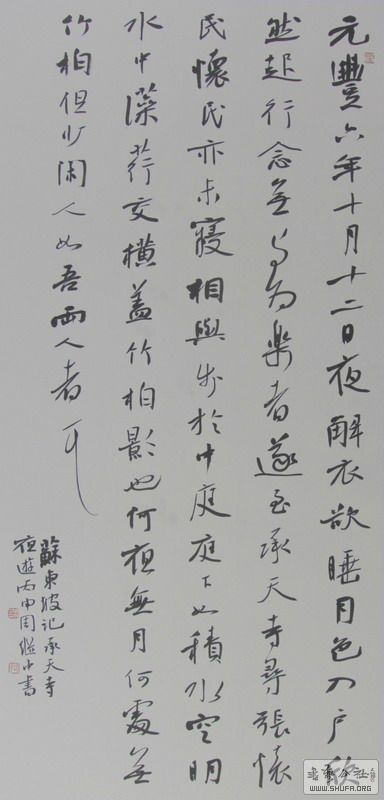 元豐六年十月十二日夜解衣欲睡月色入戶欣
然起行念無与为樂者遂至承天寺尋張懷
民懷民亦未寢相與步於中庭庭下如積水空明
水中藻荇交橫蓋竹柏影也何夜無月何處無
竹柏但少閑人如吾兩人者耳
蘇東坡記承天寺
夜遊丙申周繼中書
WWW.SHUFA.ORG